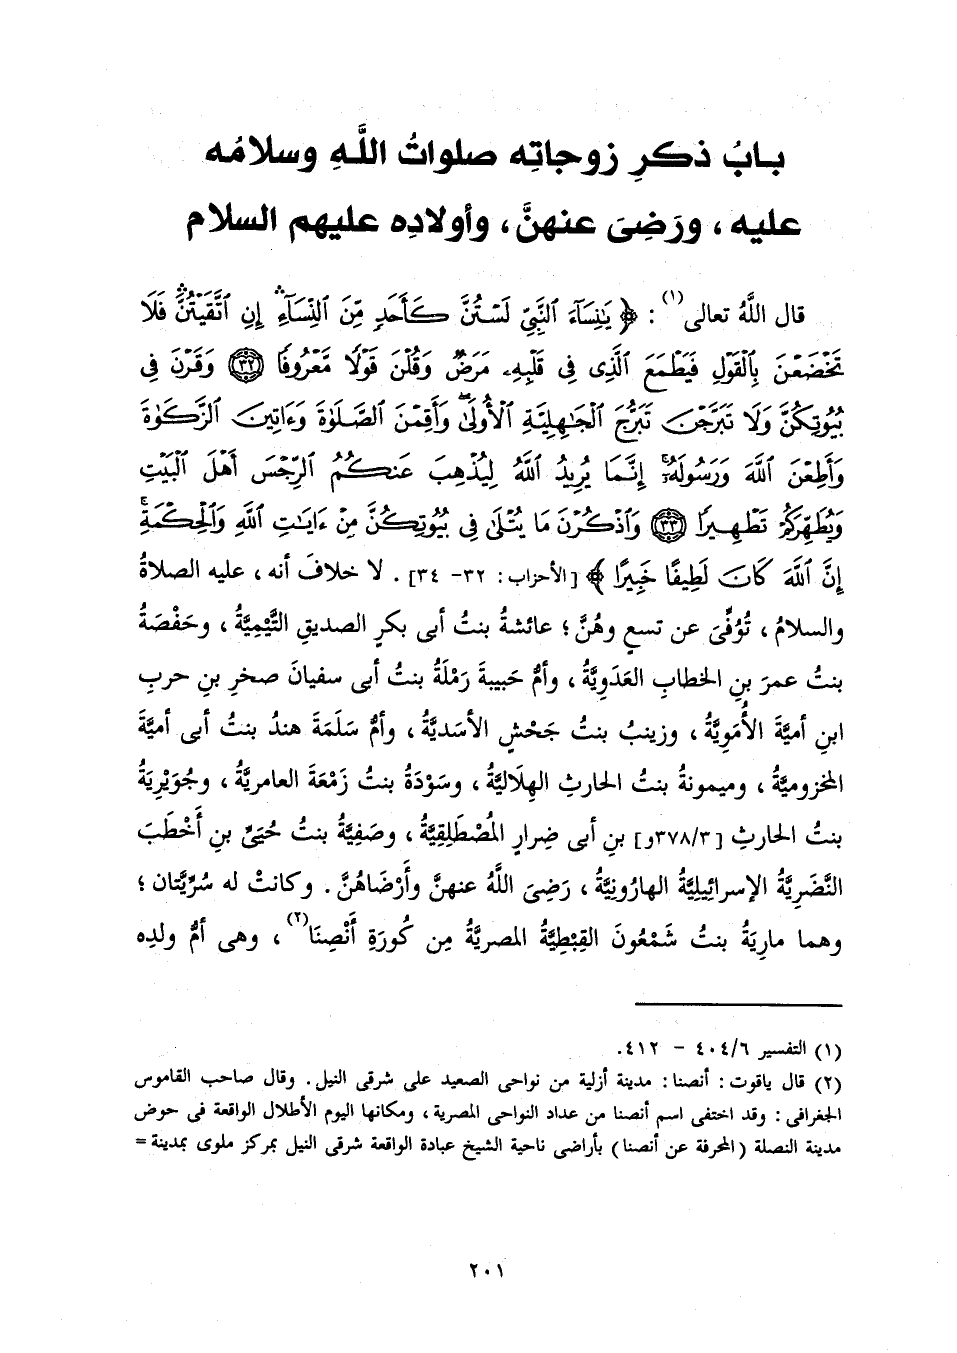 بابُ ذكرِ زوجاتِه صلواتُ اللَّهِ وسلامُه
عليه ، ورَضِىَ عنهنَّ ، وأولادِه عليهم السلام
قال اللَّهُ تعالى(١) : ﴿ يَٰنِسَآءَ ٱلنَّبِىِّ لَسْتُنَّ كَأَحَدٍ مِّنَ ٱلنِّسَآءِۚ إِنِ ٱتَّقَيْتُنَّۚ فَلَا
تَخْضَعْنَ بِٱلْقَوْلِ فَيَطْمَعَ ٱلَّذِى فِى قَلْبِهِۦ مَرَضٌ وَقُلْنَ قَوْلًا مَّعْرُوفًا ٣٢ وَقَرْنَ فِى
بُيُوتِكُنَّ وَلَا تَبَرَّجْنَ تَبَرُّجَ ٱلْجَٰهِلِيَّةِ ٱلْأُولَىٰۖ وَأَقِمْنَ ٱلصَّلَوٰةَ وَءَاتِينَ ٱلزَّكَوٰةَ
وَأَطِعْنَ ٱللَّهَ وَرَسُولَهُۥٓۚ إِنَّمَا يُرِيدُ ٱللَّهُ لِيُذْهِبَ عَنكُمُ ٱلرِّجْسَ أَهْلَ ٱلْبَيْتِ
وَيُطَهِّرَكُمْ تَطْهِيرًا ٣٣ وَٱذْكُرْنَ مَا يُتْلَىٰ فِى بُيُوتِكُنَّ مِنْ ءَايَٰتِ ٱللَّهِ وَٱلْحِكْمَةِۚ
إِنَّ ٱللَّهَ كَانَ لَطِيفًا خَبِيرًا ﴾ [الأحزاب : ٣٢- ٣٤] . لا خلافَ أنه ، عليه الصلاةُ
والسلامُ ، تُوُفِّىَ عن تسعٍ وهُنَّ ؛ عائشةُ بنتُ أبى بكرٍ الصديقِ التَّيْمِيَّةُ ، وحَفْصَةُ
بنتُ عمرَ بنِ الخطابِ العَدَوِيَّةُ ، وأمُّ حَبيبةَ رَمْلَةُ بنتُ أبى سفيانَ صخرِ بنِ حربِ
ابنِ أميَّةَ الأُمَوِيَّةُ ، وزينبُ بنتُ جَحْشٍ الأسَديَّةُ ، وأمُّ سَلَمَةَ هندُ بنتُ أبى أميَّةَ
المخزوميَّةُ ، وميمونةُ بنتُ الحارثِ الهِلَاليَّةُ ، وسَوْدَةُ بنتُ زَمْعَةَ العامريَّةُ ، وجُوَيْرِيَةُ
بنتُ الحارثِ [٣/ ٣٧٨و] بنِ أبى ضِرارٍ المُصْطَلِقِيَّةُ ، وصَفِيَّةُ بنتُ حُيَىِّ بنِ أَخْطَبَ
النَّضَرِيَّةُ الإسرائيليَّةُ الهارُونِيَّةُ ، رَضِىَ اللَّهُ عنهنَّ وأَرْضَاهُنَّ . وكانتْ له سُرِّيَّتان ؛
وهما مارِيَةُ بنتُ شَمْعُونَ القِبْطِيَّةُ المصريَّةُ مِن كُورَةِ أَنْصِنَا(٢) ، وهى أمُّ ولدِه
(١) التفسير ٦/ ٤٠٤ - ٤١٢.
(٢) قال ياقوت : أنصنا : مدينة أزلية من نواحى الصعيد على شرقى النيل . وقال صاحب القاموس
الجغرافى : وقد اختفى اسم أنصنا من عداد النواحى المصرية ، ومكانها اليوم الأطلال الواقعة فى حوض
مدينة النصلة (المحرفة عن أنصنا) بأراضى ناحية الشيخ عبادة الواقعة شرقى النيل بمركز ملوى بمدينة =
٢٠١